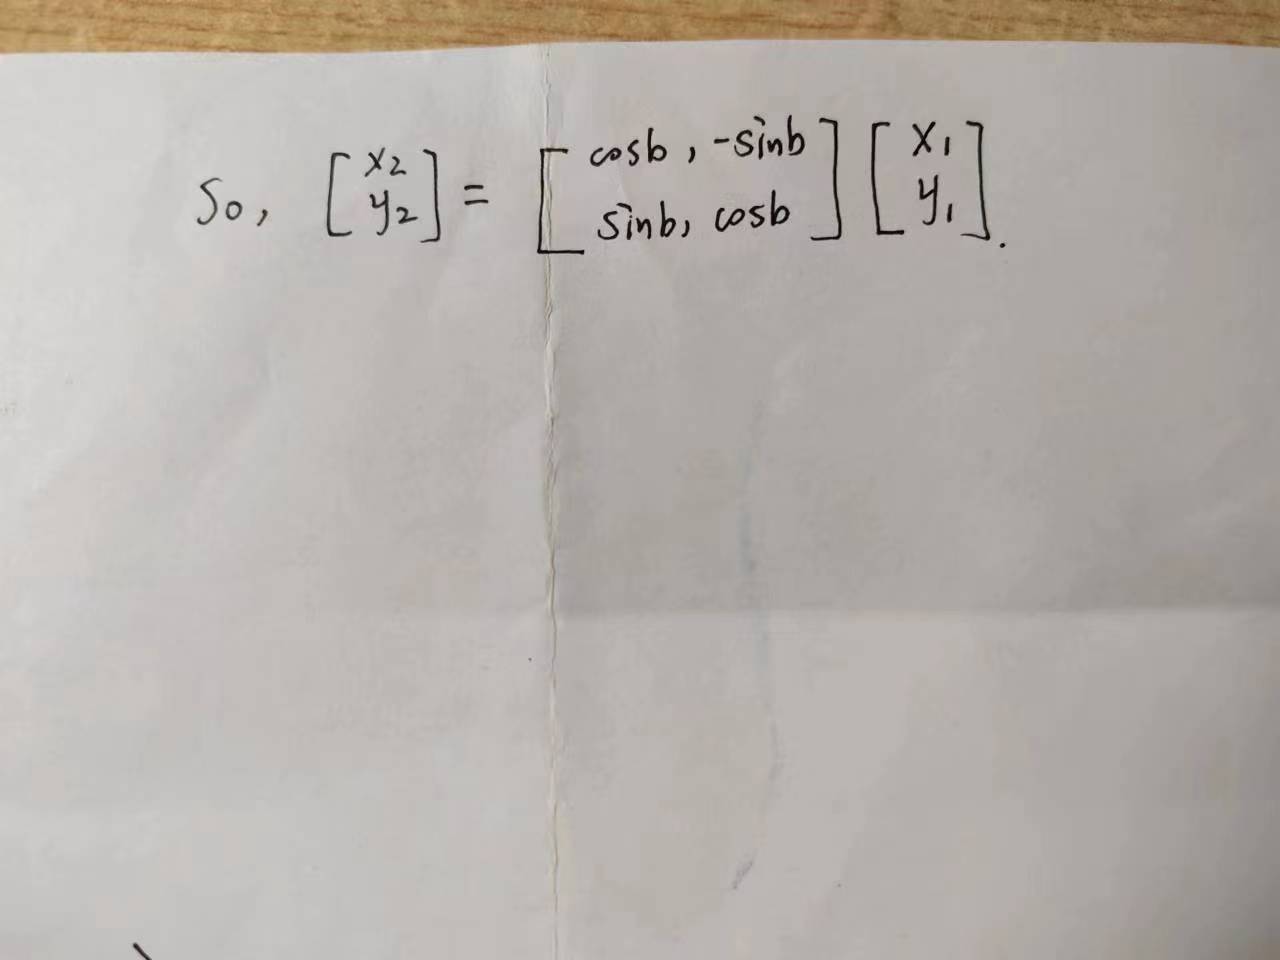 So, [x₂ y₂] = [cosb, -sinb sinb, cosb] [x₁ y₁].